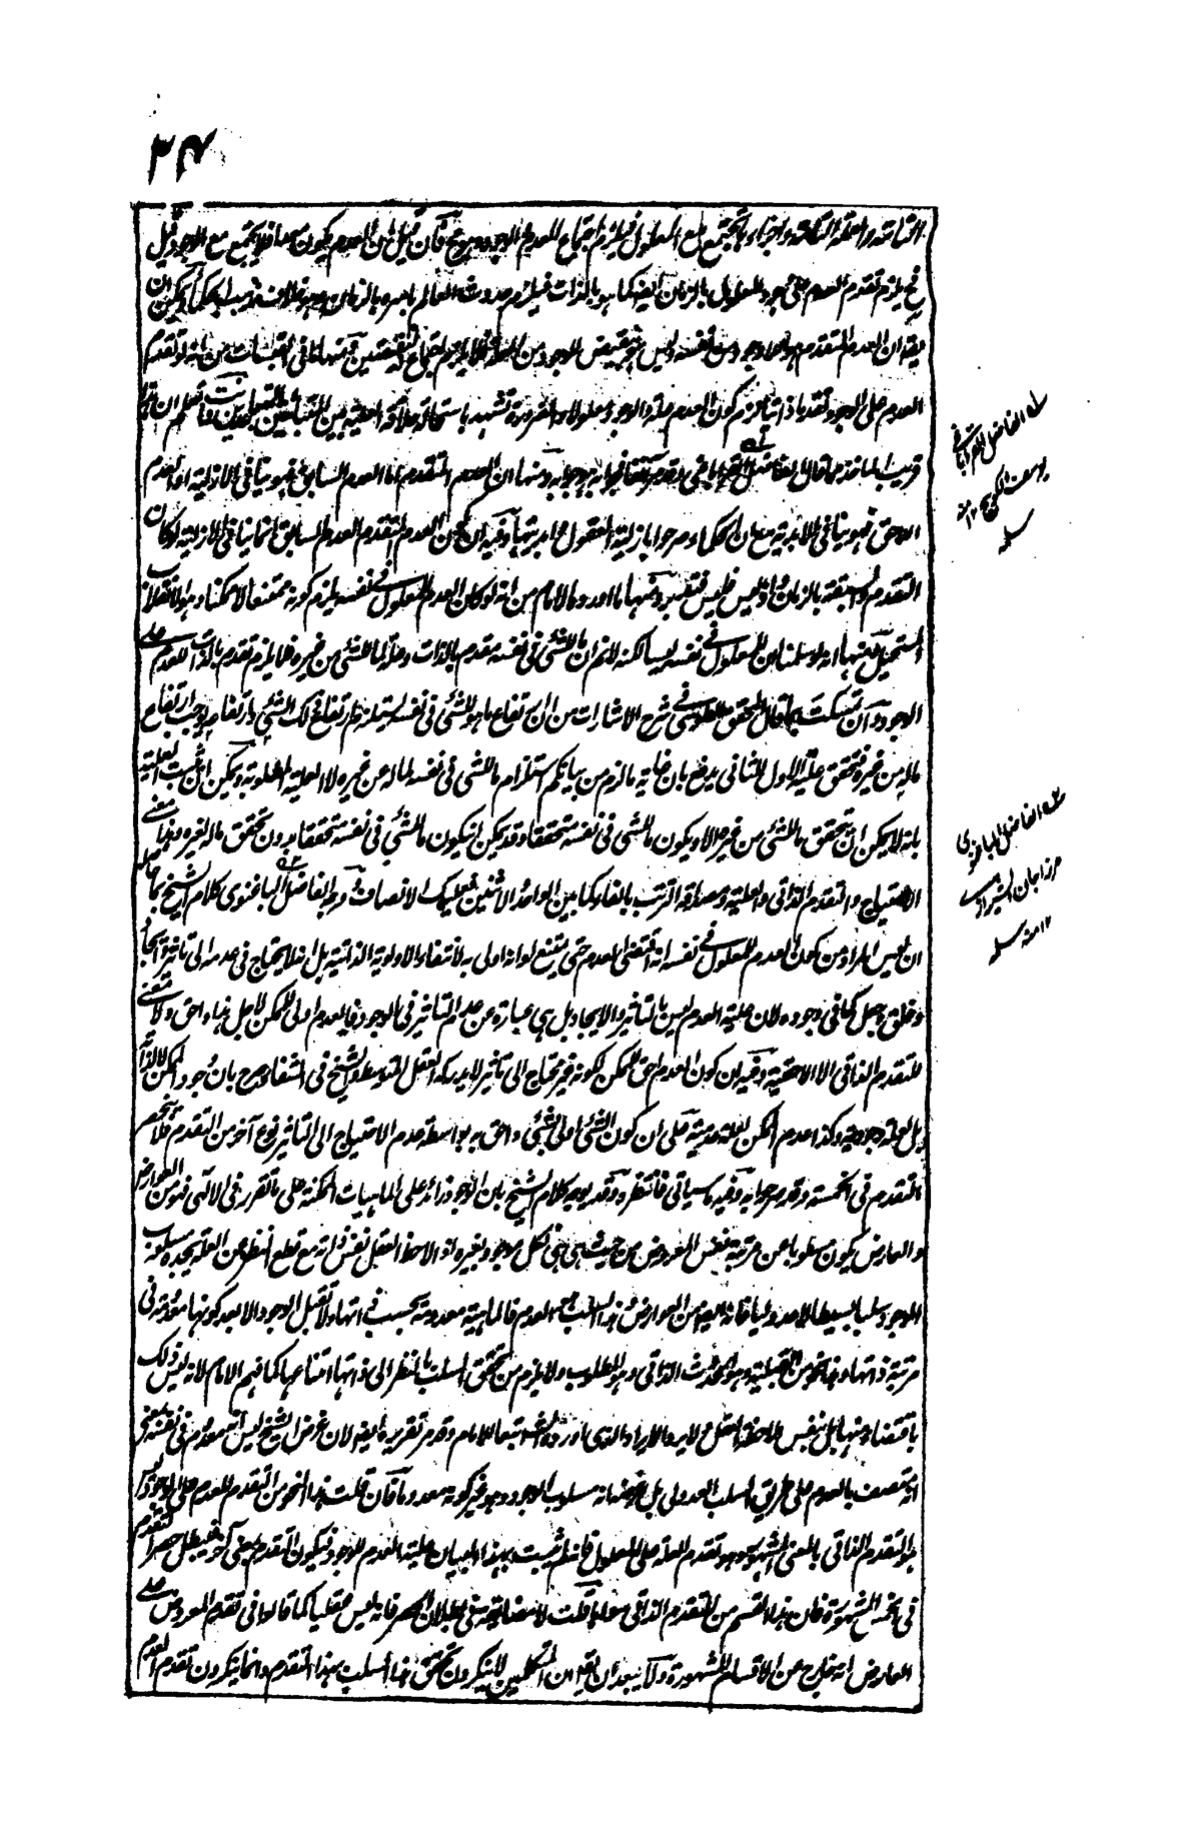 ٣٤
الناقصة والعلة التامة واجزاءها تجتمع مع المعلول فيلزم اجتماع العدم والوجود وهو مح فان قيل ان العدم يكون معدا فلا يجتمع مع الوجود قيل
فح يلزم تقدم العدم على وجود المعلول بالزمان ايضا كما هو بالذات فيلزم حدوث العالم باسره بالزمان وهو خلاف مذهب الحكماء ويمكن ان
يقه ان العدم المتقدم هو لا وجود في نفسه وليس هو نقيض الوجود من العلة فلا يلزم اجتماع النقيضين ومنها ما في القبسات من انه لو تقدم
العدم على الوجود تقدما ذاتيا لزم كون العدم علة والوجود معلولا والضرورة تشهد باستحالة علاقة العلية بين المتقابلين
قريب المأخذ مما قال الفاضل وقد مر جوابه ومنها ان العدم المتقدم اما العدم السابق فهو ينافي الازلية او العدم
اللاحق فهو ينافي الابدية مع ان الحكماء صرحوا بازلية العقول وابديتها وفيه ان كون العدم المتقدم العدم السابق انما ينافي الازلية لو كان
التقدم والسبقة بالزمان واذ ليس فليس فتدبر ومنها ما اورده الامام من انه لو كان العدم للمعلول في نفسه يلزم كونه ممتنعا لا ممكنا وهو انقلاب
مستحيل ومنها انه لو سلمنا ان للمعلول في نفسه ليسا لكنه لا نم ان ما للشئ في نفسه مقدم بالذات وعلة لما للشئ من غيره فلا يلزم تقدم بالذات للعدم على
الوجود وان تمسكت بما قال المحقق الطوسي في شرح الاشارات من ان ارتفاع ما هو للشئ في نفسه يستلزم ارتفاع ذلك الشئ وارتفاعه يوجب ارتفاع
ماله من غيره فتحقق علية الاول للثاني يدفع بان غاية ما لزم من بيانكم استلزام ما للشئ في نفسه لما له عن غيره لا العلية المطلوبة ويمكن ان تثبت العلية
بانه لا يمكن ان تحقق ما للشئ من غيره الا ويكون ما للشئ في نفسه متحققا وقد يمكن ان يكون ما للشئ في نفسه متحققا بدون تحقق ما لغيره وهذا معنى
الاحتياج والتقدم الذاتي والعلية ومصداقه الترتب بالفاء كما بين الواحد والاثنين فعليك الانصاف ووجه الفاضل الباغنوي كلام الشيخ بما حاصله
ان ليس المراد من كون العدم للمعلول في نفسه انه اقتضى العدم حتى يمتنع لو انه اولى به لانتفاء الاولوية الذاتية بل انه لا يحتاج في عدمه الى تاثير وايجاد
وخلق وجعل كما في وجوده لان علية العدم ليس بالتاثير والايجاد بل هي عبارة عن عدم التاثير في الوجود فالعدم اولى للممكن لاجل هذا واحق ولا معنى
للتقدم الذاتي الا الاحقية وفيه ان كون العدم احق للممكن لكونه غير محتاج الى تاثير لا يدركه العقل المتوسط والشيخ في الشفاء صرح بان وجود الممكن
بل لعلة وجودية وكذا عدم الممكن لعلة عدمية على ان كون الشئ اولى بالشئ واحق به بواسطة عدم الاحتياج الى التاثير نوع آخر من التقدم فلا ينحصر
التقدم في الخمسة وقد مر جوابه وفيه ما سياتي فانتظره وقد يوجه كلام الشيخ بان الوجود زائد على الماهيات الممكنة على ما تقرر في الالهي فهو من العوارض
والعارض يكون مسلوبا عن مرتبة نفس المعروض من حيث هي هي فكل موجود بغيره اذا لاحظ العقل نفس ذاته مع قطع النظر عن العلة يجده مسلوب
الوجود سلبا بسيطا لا عدوليا فانه ايضا من العوارض وهذا السلب هو العدم فالماهية معدومة بحسب ذاتها ولا تقبل الوجود الا بعد كونها معدومة في
مرتبة ذاتها وهذا نحو من القبلية وهو الحدوث الذاتي وهو المطلوب ولا يلزم من تحقق السلب بالنظر الى ذاتها امتناعها كما فهم الامام لانه ليس ذلك
باقتضاء منها بل بنفس ملاحظة العقل ولا يرد الايراد الذي اورده تبعا للامام وقد مر تقريره ايضا لان غرض الشيخ ليس انه معدوم في نفسه بمعنى
انه متصف بالعدم على طريق السلب العدولي بل غرضه انه مسلوب الوجود وهو غير كونه معدوما فان قلت هذا النحو من التقدم للعدم على الوجود ليس
هو التقدم الذاتي بالمعنى المشهور وهو تقدم العلة على المعلول فانه لم يثبت بهذا البيان علية العدم للوجود فيكون التقدم بمعنى آخر فيبطل حصر التقدم
في الخمسة المشهورة فان هذا القسم من التقدم الذاتي قلت لا مضايقة في بطلان الحصر فانه ليس عقليا كما قالوا في تقدم المعروض على
العارض انه خارج عن الاقسام المشهورة ولا يبعد ان يقه ان المتكلمين لا ينكرون تحقق هذا السلب بهذا التقدم وانما ينكرون تقدم العدم
له الفاضل
يوسف الكوسج ١٢ منه
سلمه
له الفاضل الباغنوي
مرزا جان الشيرازي
١٢ منه سلمه